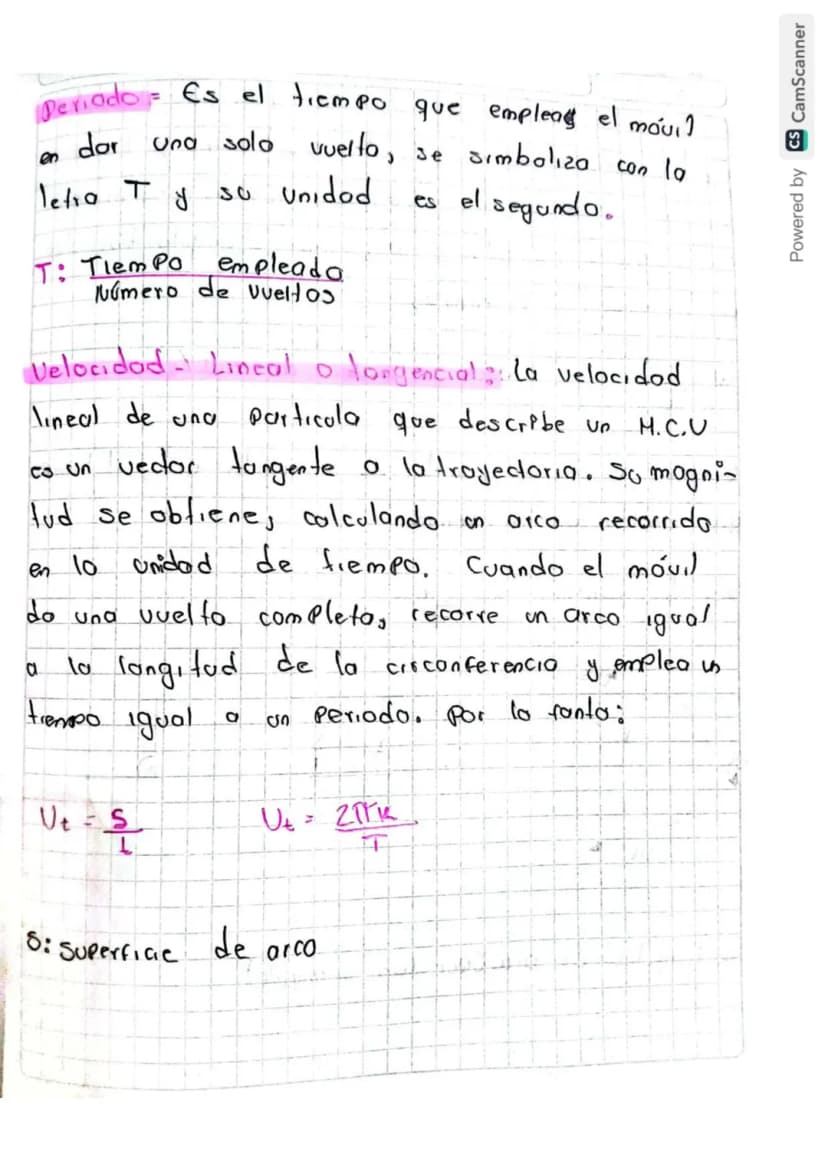 Periodo = Es el tiempo que emplea el móvil
en dar una solo vuelta, se simboliza con la
letra T y su unidad es el segundo.
T: Tiempo empleado
Número de vueltas
Velocidad - Lineal o tangencial: La velocidad
lineal de una particula que describe un M.C.U
es un vector tangente a la trayectoria. Su magni-
tud se obtiene, calculando un arco recorrido
en la unidad de tiempo. Cuando el móvil
da una vuelta completa, recorre un arco igual
a la longitud de la circonferencia y emplea un
tiempo igual a un periodo. Por lo tanto:
Vt = S Vt = 2πr
t T
S: Superficie de arco
Powered by CS CamScanner